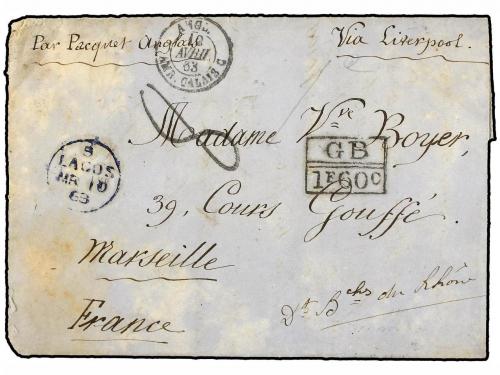 Par Pacquet Anglais
Via Liverpool.
ANGL.
10
AVRIL
63
AMB. CALAIS C
8
Madame Vve Boyer,
GB
1F60c
B
LAGOS
MR 10
63
39, Cours Gouffé.
Marseille
Dt Bches du Rhône
France